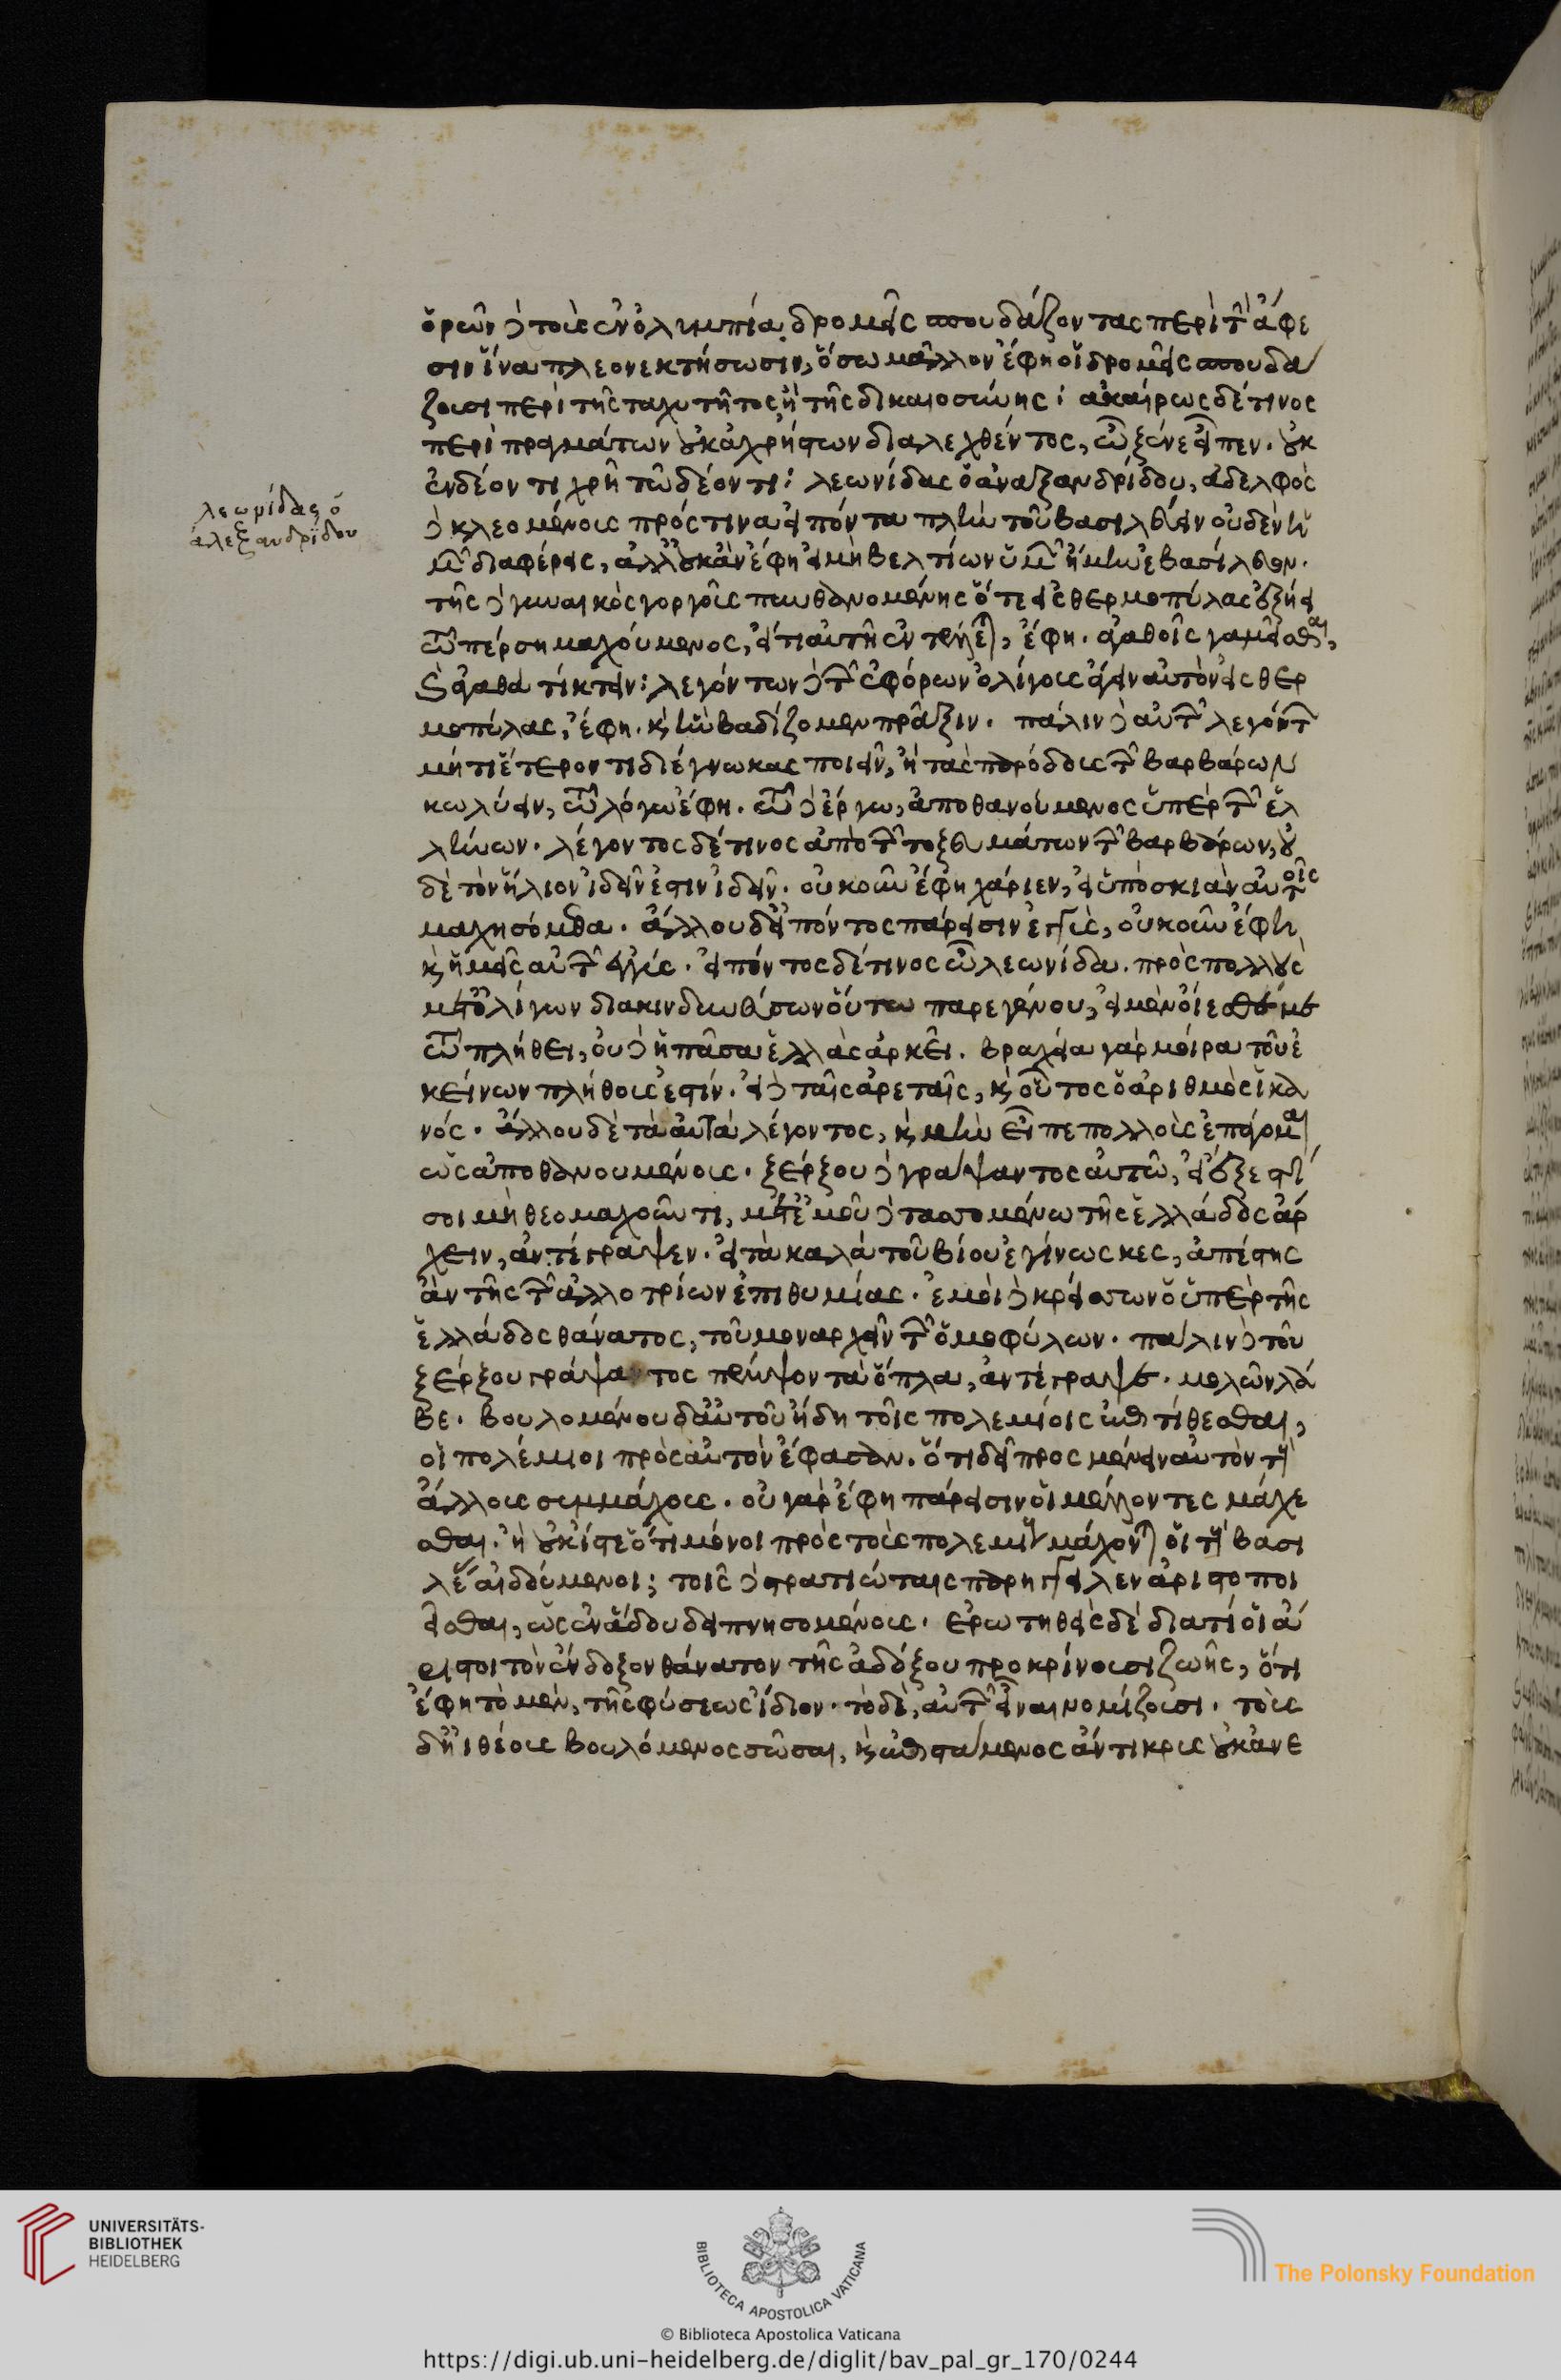 ὁρῶν δὲ τοὺς ἐν ὀλυμπία δρομεῖς σπουδάζοντας περὶ τῆς ἀφέ
σιν ἵνα πλεονεκτήσωσιν, ὅσω μᾶλλον ἔφη οἱ δρομεῖς σπουδά
ζουσι περὶ τῆς ταχυτῆτος ἢ τῆς δικαιοσύνης: ἀκαίρως δέ τινος
περὶ πραγμάτων οὐκ ἀχρήστων διαλεχθέντος, ὦ ξένε εἶπεν. οὐκ
ἐν δέοντι χρῆ τῶ δέοντι: λεωνίδας ὁ ἀναξανδρίδου, ἀδελφὸς
δὲ κλεομένους πρός τινα εἰπόντα πλὴν τοῦ βασιλεύειν οὐδὲν ἡ
μῶν διαφέρεις, ἀλλ' οὐκ ἂν ἔφη εἰ μὴ βελτίων ὑμῶν ἤμην ἐβασίλευον.
τῆς δὲ γυναικὸς γοργοῦς πυνθανομένης ὅτε εἰς θερμοπύλας ἐξήει
τῶ πέρση μαχούμενος, εἴ τι αὐτῆ ἐντέλλεται, ἔφη. ἀγαθοῖς γαμεῖσθαι,
καὶ ἀγαθὰ τίκτειν: λεγόντων δὲ τῶν ἐφόρων ὀλίγους ἄγειν αὐτὸν εἰς θερ
μοπύλας, ἔφη. καὶ ἣν βαδίζομεν πρᾶξιν. πάλιν δὲ αὐτῶν λεγόντων
μή τι ἕτερόν τι διέγνωκας ποιεῖν, ἢ τὰς παρόδους τῶν βαρβάρων
κωλύειν, τῶ λόγω ἔφη. τῶ δὲ ἔργω, ἀποθανούμενος ὑπὲρ τῶν ἑλ
λήνων. λέγοντος δέ τινος ἀπὸ τῶν τοξευμάτων τῶν βαρβάρων, οὐ
δὲ τὸν ἥλιον ἰδεῖν ἔστιν ἰδεῖν. οὐκοῦν ἔφη χάριεν, εἰ ὑπὸ σκιὰν αὐτοῖς
μαχησόμεθα. ἄλλου δὲ εἰπόντος πάρεισιν ἐγγὺς, οὐκοῦν ἔφη
καὶ ἡμεῖς αὐτῶν ἐγγύς. εἰπόντος δέ τινος ὦ λεωνίδα. πρὸς πολλοὺς
μετ' ὀλίγων διακινδυνεύσων οὕτω παρεγένου, εἰ μὲν οἴεσθέ με
τῶ πλήθει, οὐδὲ ἡ πᾶσα ἑλλὰς ἀρκεῖ. βραχεῖα γὰρ μοίρα τοῦ ἐ
κείνων πλήθους ἐστίν. εἰ δὲ ταῖς ἀρεταῖς, καὶ οὗτος ὁ ἀριθμὸς ἱκα
νός. ἄλλου δὲ τὰ αὐτὰ λέγοντος, καὶ μὴν εἶπε πολλοὺς ἐπάγομαι
ὡς ἀποθανουμένους. ξέρξου δὲ γράψαντος αὐτῶ, ἔξεστί
σοι μὴ θεομαχοῦντι, μετ' ἐμοῦ δὲ ταττομένω τῆς ἑλλάδος ἄρ
χειν, ἀντέγραψεν. εἰ τὰ καλὰ τοῦ βίου ἐγίνωσκες, ἀπέστης
ἂν τῆς τῶν ἀλλοτρίων ἐπιθυμίας. ἐμοὶ δὲ κρείττων ὁ ὑπὲρ τῆς
ἑλλάδος θάνατος, τοῦ μοναρχεῖν τῶν ὁμοφύλων. πάλιν δὲ τοῦ
ξέρξου γράψαντος πέμψον τὰ ὅπλα, ἀντέγραψε. μολὼν λά
βε. βουλομένου δ' αὐτοῦ ἤδη τοῖς πολεμίοις ἐπιτίθεσθαι,
οἱ πολέμιοι πρὸς αὐτὸν ἔφασαν. ὅτι δεῖ προσμένειν αὐτὸν τοὺς
ἄλλους συμμάχους. οὐ γὰρ ἔφη πάρεισιν οἱ μέλλοντες μάχε
σθαι. ἢ οὐκ ἴστε ὅτι μόνοι πρὸς τοὺς πολεμίους μάχονται οἱ τοὺς βασι
λεῖς αἰδούμενοι; τοῖς δὲ στρατιώταις παρήγγειλεν ἀριστοποι
εῖσθαι, ὡς ἐν ἅδου δειπνησομένους. ἐρωτηθεὶς δὲ διατί οἱ ἄ
ριστοι τὸν ἔνδοξον θάνατον τῆς ἀδόξου προκρίνουσι ζωῆς, ὅτι
ἔφη τὸ μὲν, τῆς φύσεως ἴδιον. τὸ δὲ, αὐτῶν εἶναι νομίζουσι. τοὺς
δὲ ἠιθέους βουλόμενος σῶσαι, καὶ ἐπιστάμενος ἄντικρυς οὐκ ἀνε
λεωνίδας ὁ
ἀλεξανδρίδου
UNIVERSITÄTS-
BIBLIOTHEK
HEIDELBERG
BIBLIOTECA APOSTOLICA VATICANA
© Biblioteca Apostolica Vaticana
The Polonsky Foundation
https://digi.ub.uni-heidelberg.de/diglit/bav_pal_gr_170/0244